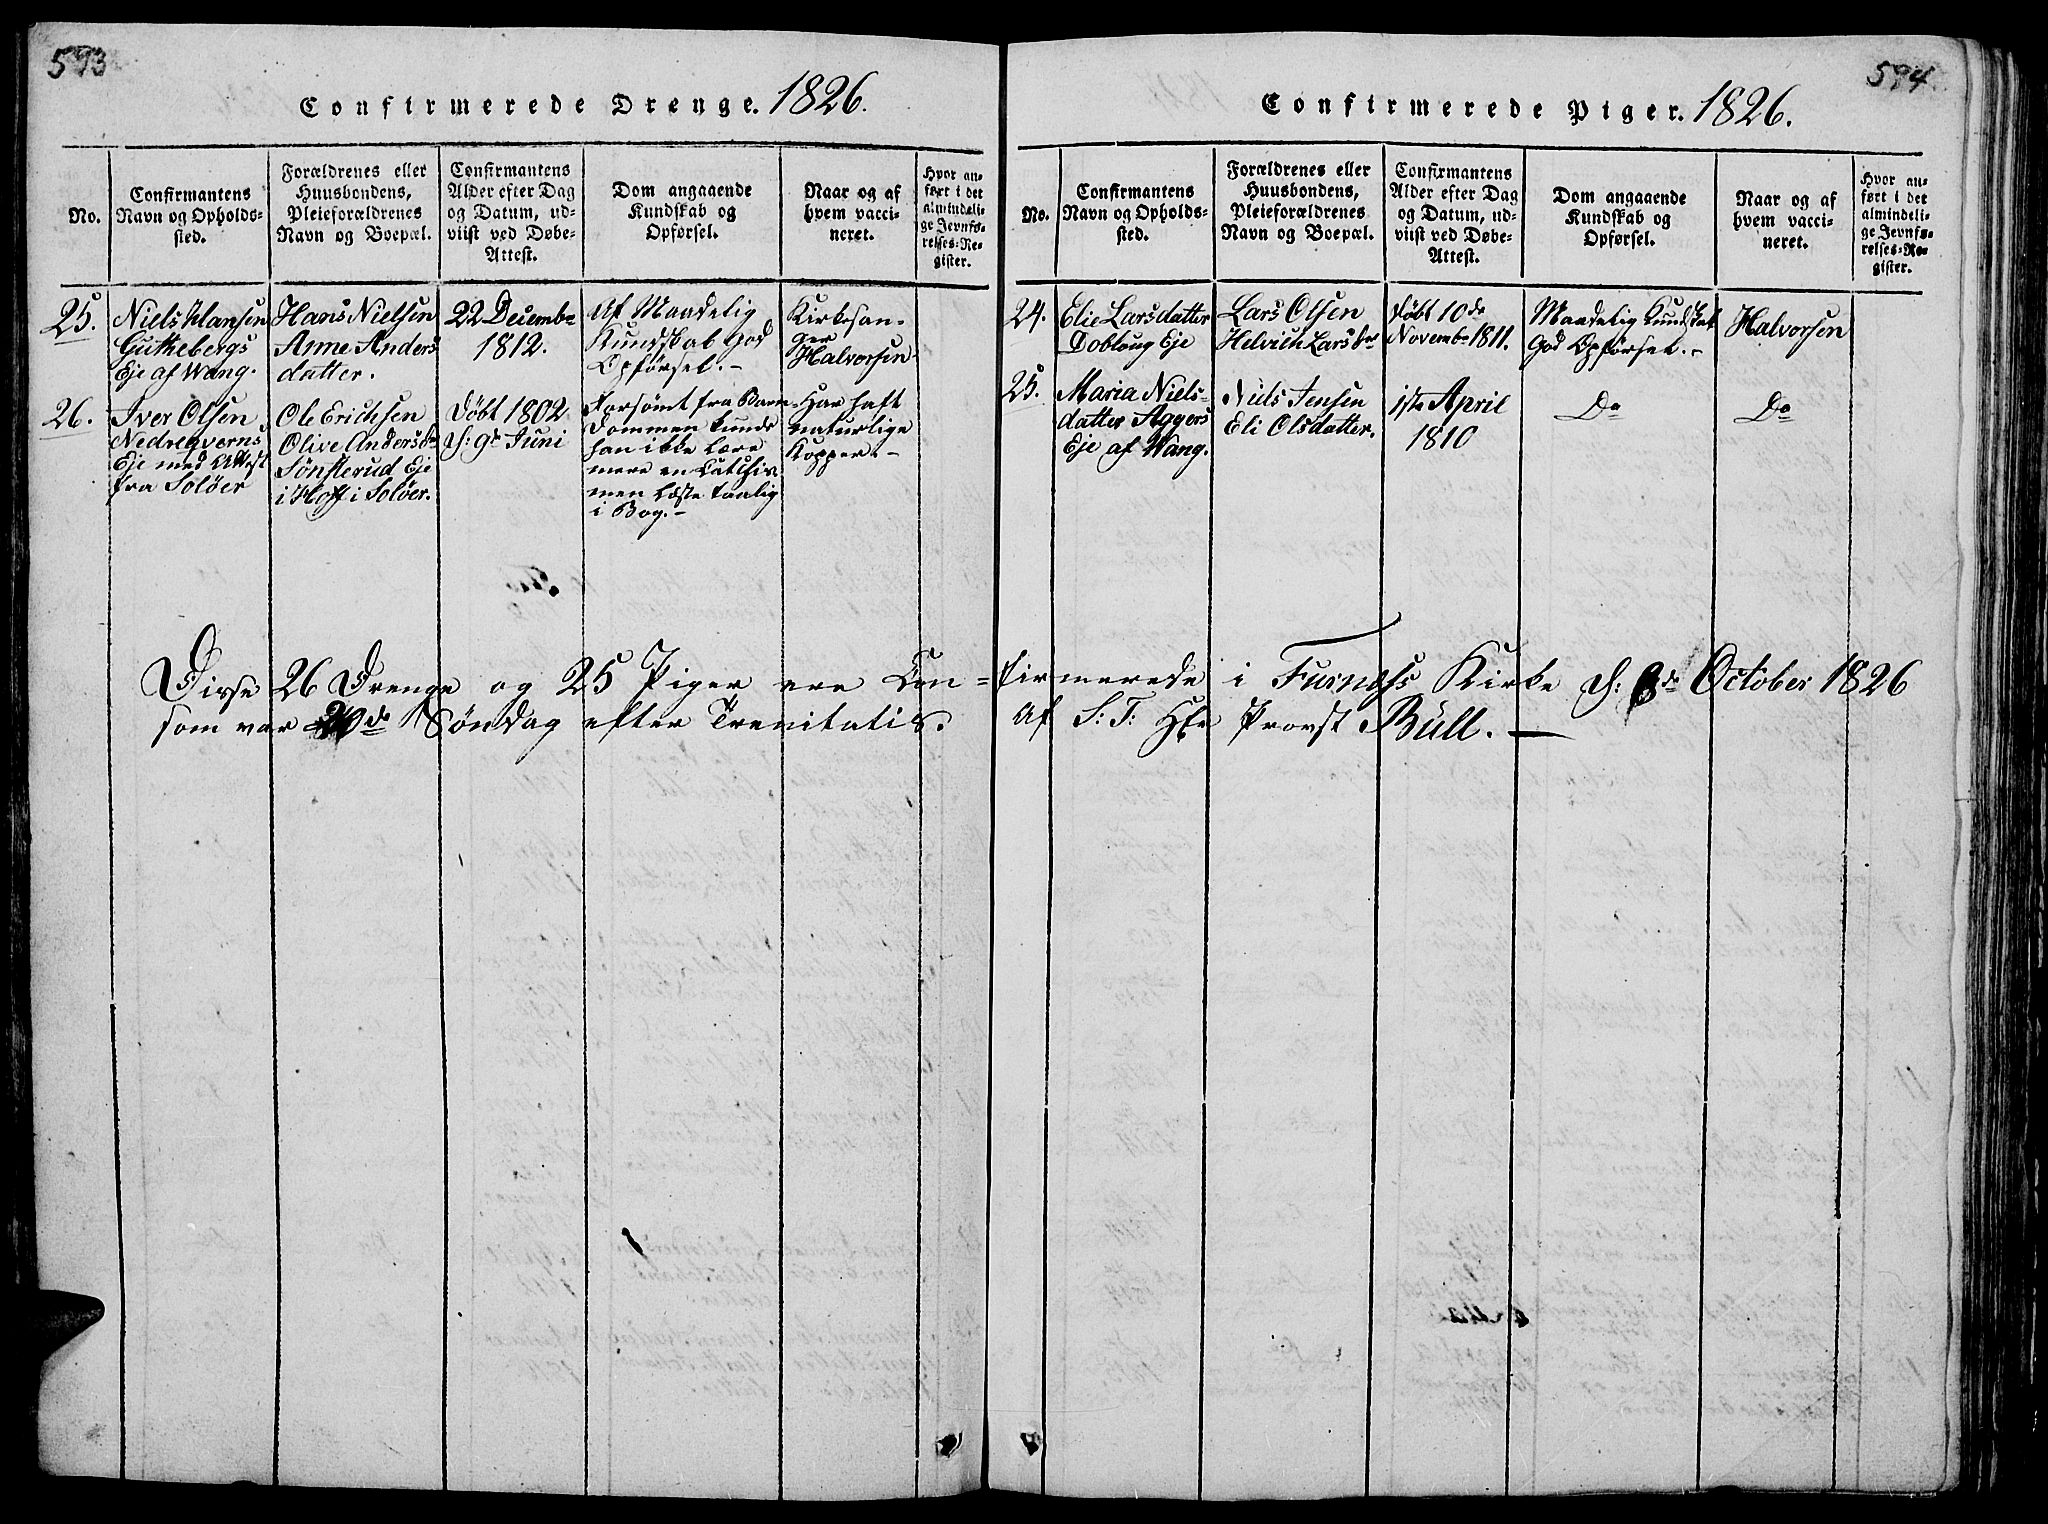 593
Confirmerede Drenge. 1826.
No.
Confirmantens
Navn og Opholds-
sted.
Forældrenes eller
Huusbondens,
Pleieforældrenes
Navn og Boepæl.
Confirmantens
Alder efter Dag
og Datum, ud-
viist ved Døbe-
Attest.
Dom angaaende
Kundskab og
Opførsel.
Naar og af
hvem vacci-
neret.
Hvor an-
ført i det
almindeli-
ge Jevnfø-
relses-Re-
gister.
25.
Niels Hansen
Guthebergs
Eje af Wang.
Hans Nielsen
Anne Anders
datter.
22 Decembr
1812.
Af Maadelig
Kundskab God
Opførsel.-
Kirkesan-
ger
Halvorsen
26.
Iver Olsen
Nedrehverns
Eje med Attest
fra Soløer
Ole Erichsen
Olive Andersdr
Sønsterud Eje
i Hoff i Soløer.
Døbt 1802
d: 9de Juni
Forsømt fra Barn-
dommen kunde
han ikke lære
mere en Catchis
men læste taalig
i Bog.-
Har haft
naturlige
Kopper.-
594
Confirmerede Piger. 1826.
No.
Confirmantens
Navn og Opholds-
sted.
Forældrenes eller
Huusbondens,
Pleieforældrenes
Navn og Boepæl.
Confirmantens
Alder efter Dag
og Datum, ud-
viist ved Døbe-
Attest.
Dom angaaende
Kundskab og
Opførsel.
Naar og af
hvem vacci-
neret.
Hvor an-
ført i det
almindeli-
ge Jevnfø-
relses-Re-
gister.
24.
Elie Larsdatter
Dobloug Eje
Lars Olsen
Helvich Larsdr
Døbt 10de
Novembr 1811.
Maadelig Kundskab
God Opførsel.-
Halvorsen
25.
Maria Niels-
datter Aggers
Eje af Wang.
Niels Jensen
Eli Olsdatter.
1ste April
1810
Do
Do
Disse 26 Drenge og 25 Piger ere Con=firmerede i Furnæss Kirke d: 8de October 1826
som var 20de Søndag efter Trenitatis. Af S: T: Hr Provst Büll.-